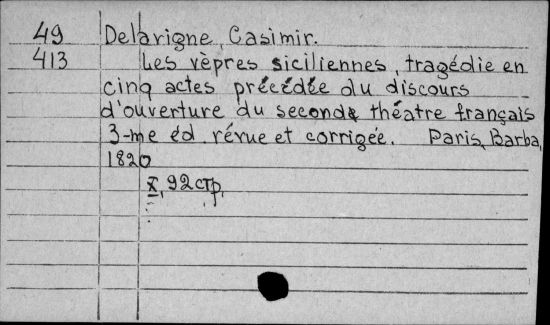 49 Delavigne, Casimir.
413 Les vèpres siciliennes, tragédie en
cinq actes précédée du discours
d'ouverture du second théatre français
3-me éd. révue et corrigée. Paris, Barba,
1820
X, 92 стр.